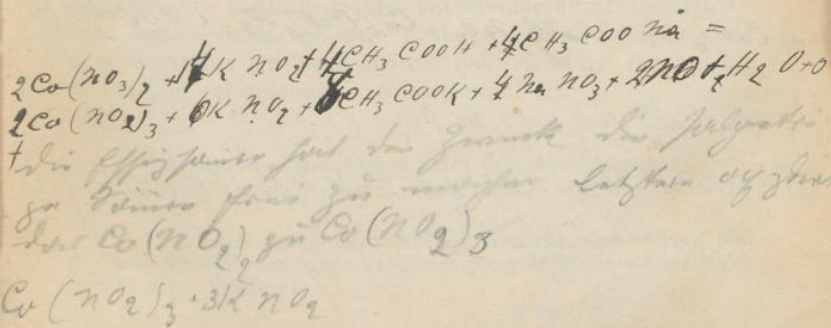 2Co(NO3)2 + 14KNO2 + 4CH3COOH + 4CH3COONa =
2Co(NO2)3 + 6KNO2 + 8CH3COOK + 4NaNO3 + 2NO + 2H2O + O
† die Essigsäure hat den Zweck die salpetri
ge Säure frei zu machen letztere oxydiert
das Co(NO2)2 zu Co(NO2)3
Co(NO2)3 · 3KNO2